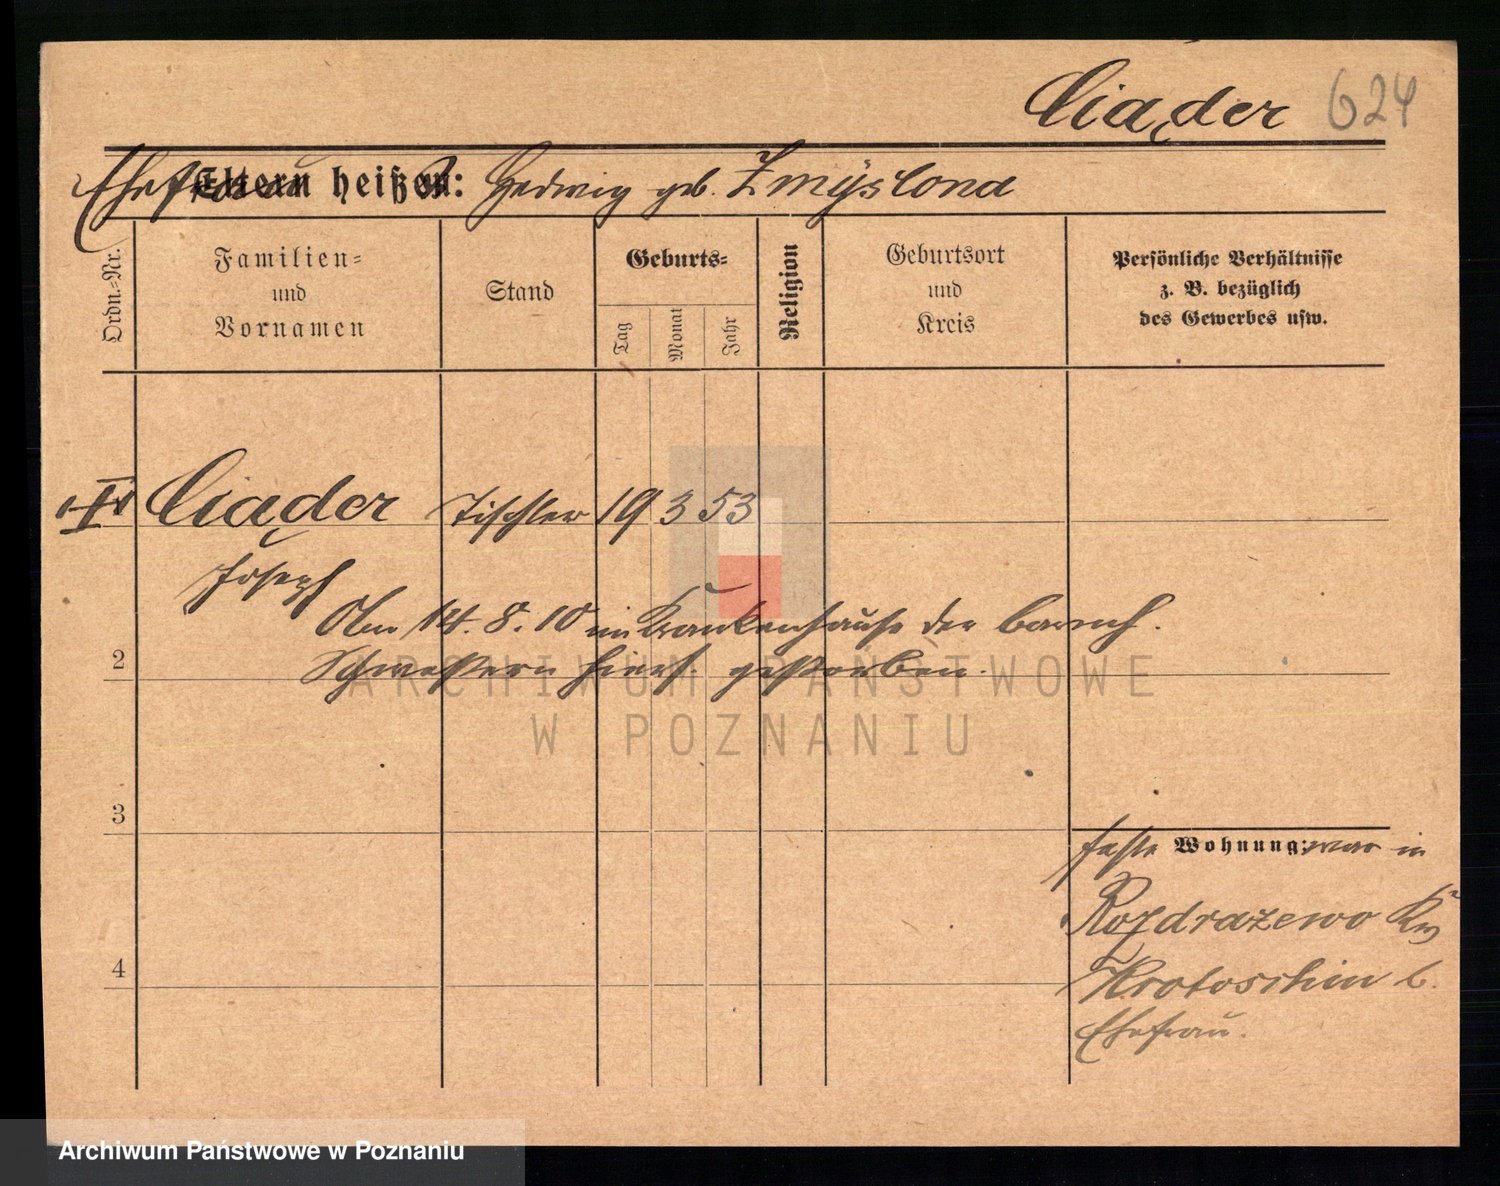 Ciąder 624
Ehefrau Eltern heißen: Hedwig geb. Zmyślona
Ordn.-Nr.
Familien-
und
Vornamen
Stand
Geburts-
Tag
Monat
Jahr
Religion
Geburtsort
und
Kreis
Persönliche Verhältnisse
z. B. bezüglich
des Gewerbes usw.
1 Ciąder Tischler 19 3 53
Joseph
Am 14. 8. 10 im Krankenhause der barmh.
Schwestern hiers. gestorben.
2
3
feste Wohnung: war in
Rozdrażewo Krs
Krotoschin b.
Ehefrau.
4
ARCHIWUM PAŃSTWOWE
W POZNANIU
Archiwum Państwowe w Poznaniu